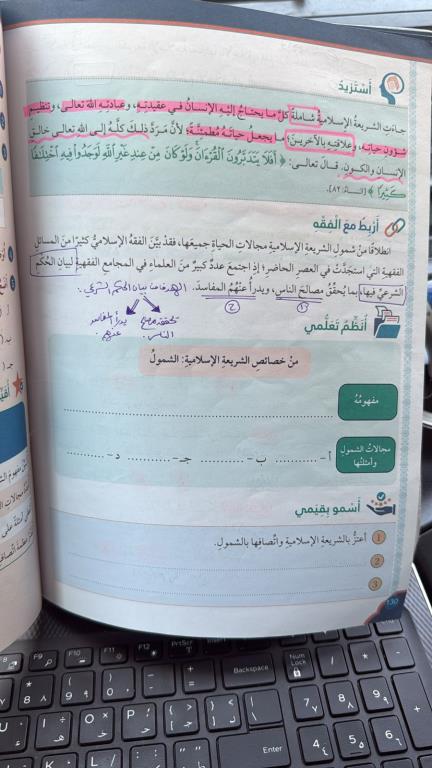 أَسْتَزيدُ
جاءَتِ الشريعةُ الإسلاميةُ شاملةً كلَّ ما يحتاجُ إليْهِ الإنسانُ في عقيدتِهِ، وعبادتِهِ اللهَ تعالى، وتنظيمِ
شؤونِ حياتِهِ، وعلاقتِهِ بالآخرينَ؛ ما يجعلُ حياتَهُ مُطمئنةً؛ لأنَّ مَرَدَّ ذلكَ كلِّهِ إلى اللهِ تعالى خالقِ
الإنسانِ والكونِ. قالَ تعالى: ﴿أَفَلَا يَتَدَبَّرُونَ الْقُرْءَانَ وَلَوْ كَانَ مِنْ عِندِ غَيْرِ اللَّهِ لَوَجَدُوا فِيهِ اخْتِلَافًا
كَثِيرًا﴾ [النساء: ٨٢].
أَرْبِطُ معَ الْفِقْهِ
انطلاقًا منْ شمولِ الشريعةِ الإسلاميةِ مجالاتِ الحياةِ جميعَها، فقدْ بيَّنَ الفقهُ الإسلاميُّ كثيرًا منَ المسائلِ
الفقهيةِ التي استجدَّتْ في العصرِ الحاضرِ؛ إذِ اجتمعَ عددٌ كبيرٌ منَ العلماءِ في المجامعِ الفقهيةِ لبيانِ الحُكمِ
الشرعيِّ فيها، بما يُحقِّقُ مصالحَ الناسِ، ويدرأُ عنْهُمُ المفاسدَ. الهدف من بيان الحكم الشرعي:
① ②
تحقيق مصالح الناس. يدرأ المفاسد عنهم.
أُنَظِّمُ تَعَلُّمي
منْ خصائصِ الشريعةِ الإسلاميةِ: الشمولُ
مفهومُهُ
مجالاتُ الشمولِ وأمثلتُها
أ- .......... ب- .......... جـ- .......... د- ..........
أَسْمو بِقِيَمي
1 أعتزُّ بالشريعةِ الإسلاميةِ واتِّصافِها بالشمولِ.
2
3
130
F8 F9 F10 F11 F12 PrtScr Insert
Backspace Num Lock / * -
Enter 7 8 9 + 4 5 6